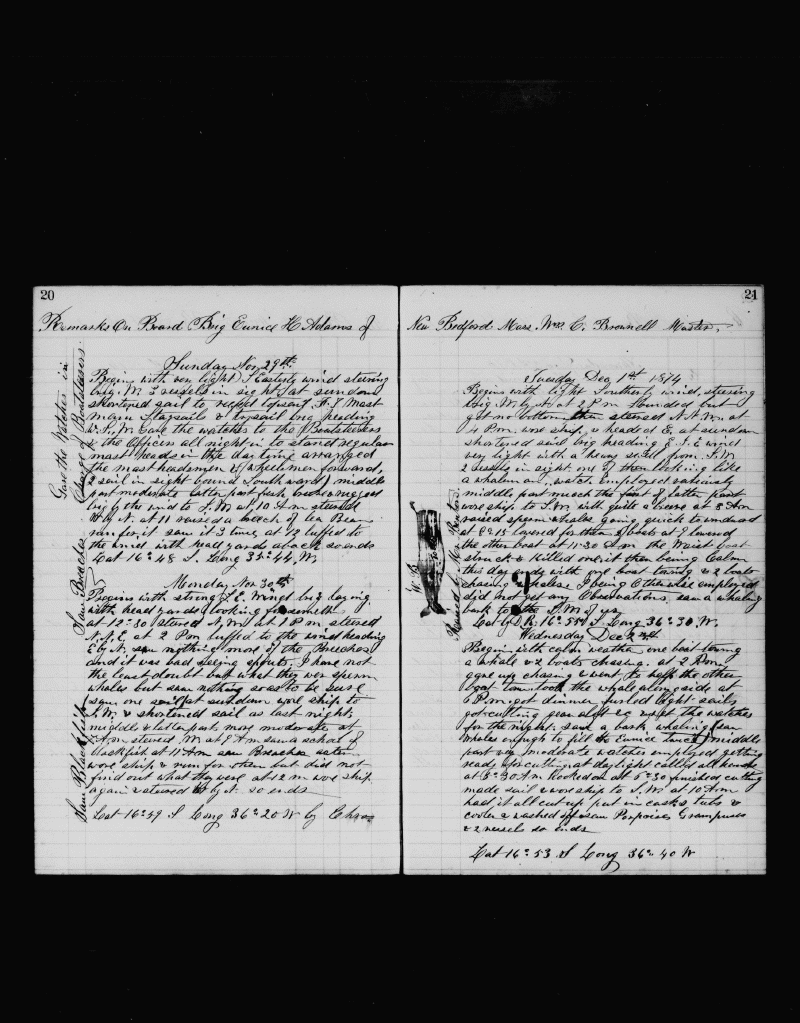 20
Remarks On Board Brig Eunice H Adams of
Gave the Watches in
Charge of Boatsteerers
Sunday Nov 29th
Begins with very light S Easterly wind steering
by W. 3 vessels in sight at sundown
shortened sail to reefed foresail F. T Mast
Main Staysails & trysail brig heading
W.S.W. Gave the watches to the Boatsteerers
& the Officers all night in to stand regular
mast heads in the day time arranged
the mastheadsmen & wheelmen forward,
2 sail in sight bound Southward middle
part moderate latter part fresh
brig by the wind to S.W. at 10 Am steered
W by N. at 11 raised a breach of ten Bear
run for it saw it 3 times at 12 luffed to
the wind with head yards aback so ends
Lat 16=48 S. Long 35=44, W,
Saw Breaches
Monday Nov 30th
Begins with strong S.E. Wind brig laying
with head yards looking for
at 12=30 steered N.W. at 1 P.m steered
N.N.E. at 2 Pm luffed to the wind heading
E by N, saw nothing more of the Breeches
and it was bad seeing spouts, I have not
the least doubt but what they wer sperm
whales but saw nothing so as to be sure
saw one sail at sundown wore ship to
S.W. & shortened sail as last night;
middle & latter part more moderate at
Am steered W. at 9 Am saw a school of
Blackfish at 11 Am saw Breaches astern
wore ship & run for them but did not
find out what they were at 12 m wore ship
again & steered W by N. so ends
Saw Blackfish
Lat 16=49 S Long 36=20 W by Chron
21
New Bedford Mass. Wm. C. Brownell Master,
Tuesday Dec 1st 1874
Begins with light Southerly wind, steering
brig W by N. at 2 P.m Sounded but
got no bottom then steered N.N.W. at
4 Pm. wore ship & headed E, at sundown
shortened sail brig heading E.S.E wind
very light with a heavy swell from S.W.
2 vessels in sight one of them looking like
a whaleman, watch employed variously
middle part much the first of latter part
wore ship to S.W. with quite a breeze at 8 Am
raised sperm whales going quick to windward
at 8=15 lowered for them 2 boats at 9 lowered
the other boat at 11=30 Am the Waist boat
struck & killed one it then being Calm
this day ends with one boat towing & 2 boats
chasing whales. I being Otherwise employed
did not get any Observations, saw a whaling
bark to the S.W. of us
Lat by D.R. 16=55 S Long 36=30 W.
Raised by Mr.
W B
Wednesday Dec 2nd
Begins with calm weather one boat towing
a whale & 2 boats chasing. at 2 P.m
gave up chasing & went to help the other
boat tow took the whale alongside at
6 P.m, got dinner furled light sails
got cutting gear aloft &c & set the watches
for the night. saw a bark whaling (saw
whales enough to fill the Eunice twice) middle
part very moderate watches employed getting
ready for cutting, at daylight called all hands
at 5=30 Am Hooked on at 9=30 finished cutting
made sail & wore ship to S.W. at 10 Am
had it all cut up put in casks & tubs &
cooler & washed off saw Porpoises Grampuses
& 2 vessels so ends
Lat 16=53 S Long 36=40 W